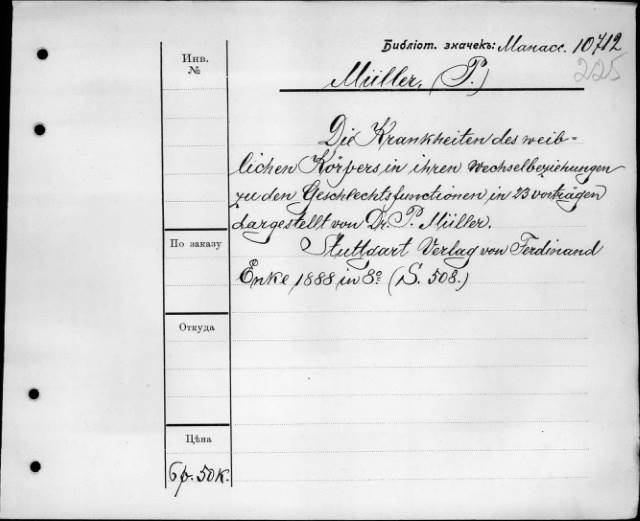 Библіот. значекъ: Манасс. 10712
225
Инв.
№
Müller, (P.)
Die Krankheiten des weib-
lichen Körpers in ihren Wechselbeziehungen
zu den Geschlechtsfunctionen in 23 vorträgen
dargestellt von Dr. P. Müller.
По заказу
Stuttgart Verlag von Ferdinand
Enke 1888 in 8º (S. 508.)
Откуда
Цѣна
6 р. 50 к.